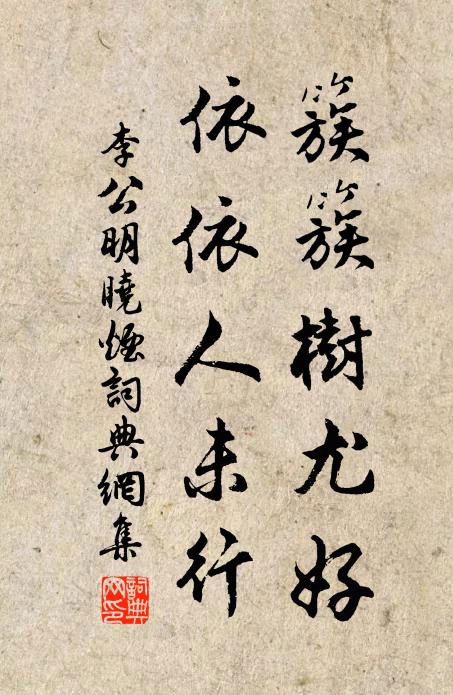 簇簇樹尤好
依依人未行
李公明曉煙詞典網集
詞典
网印